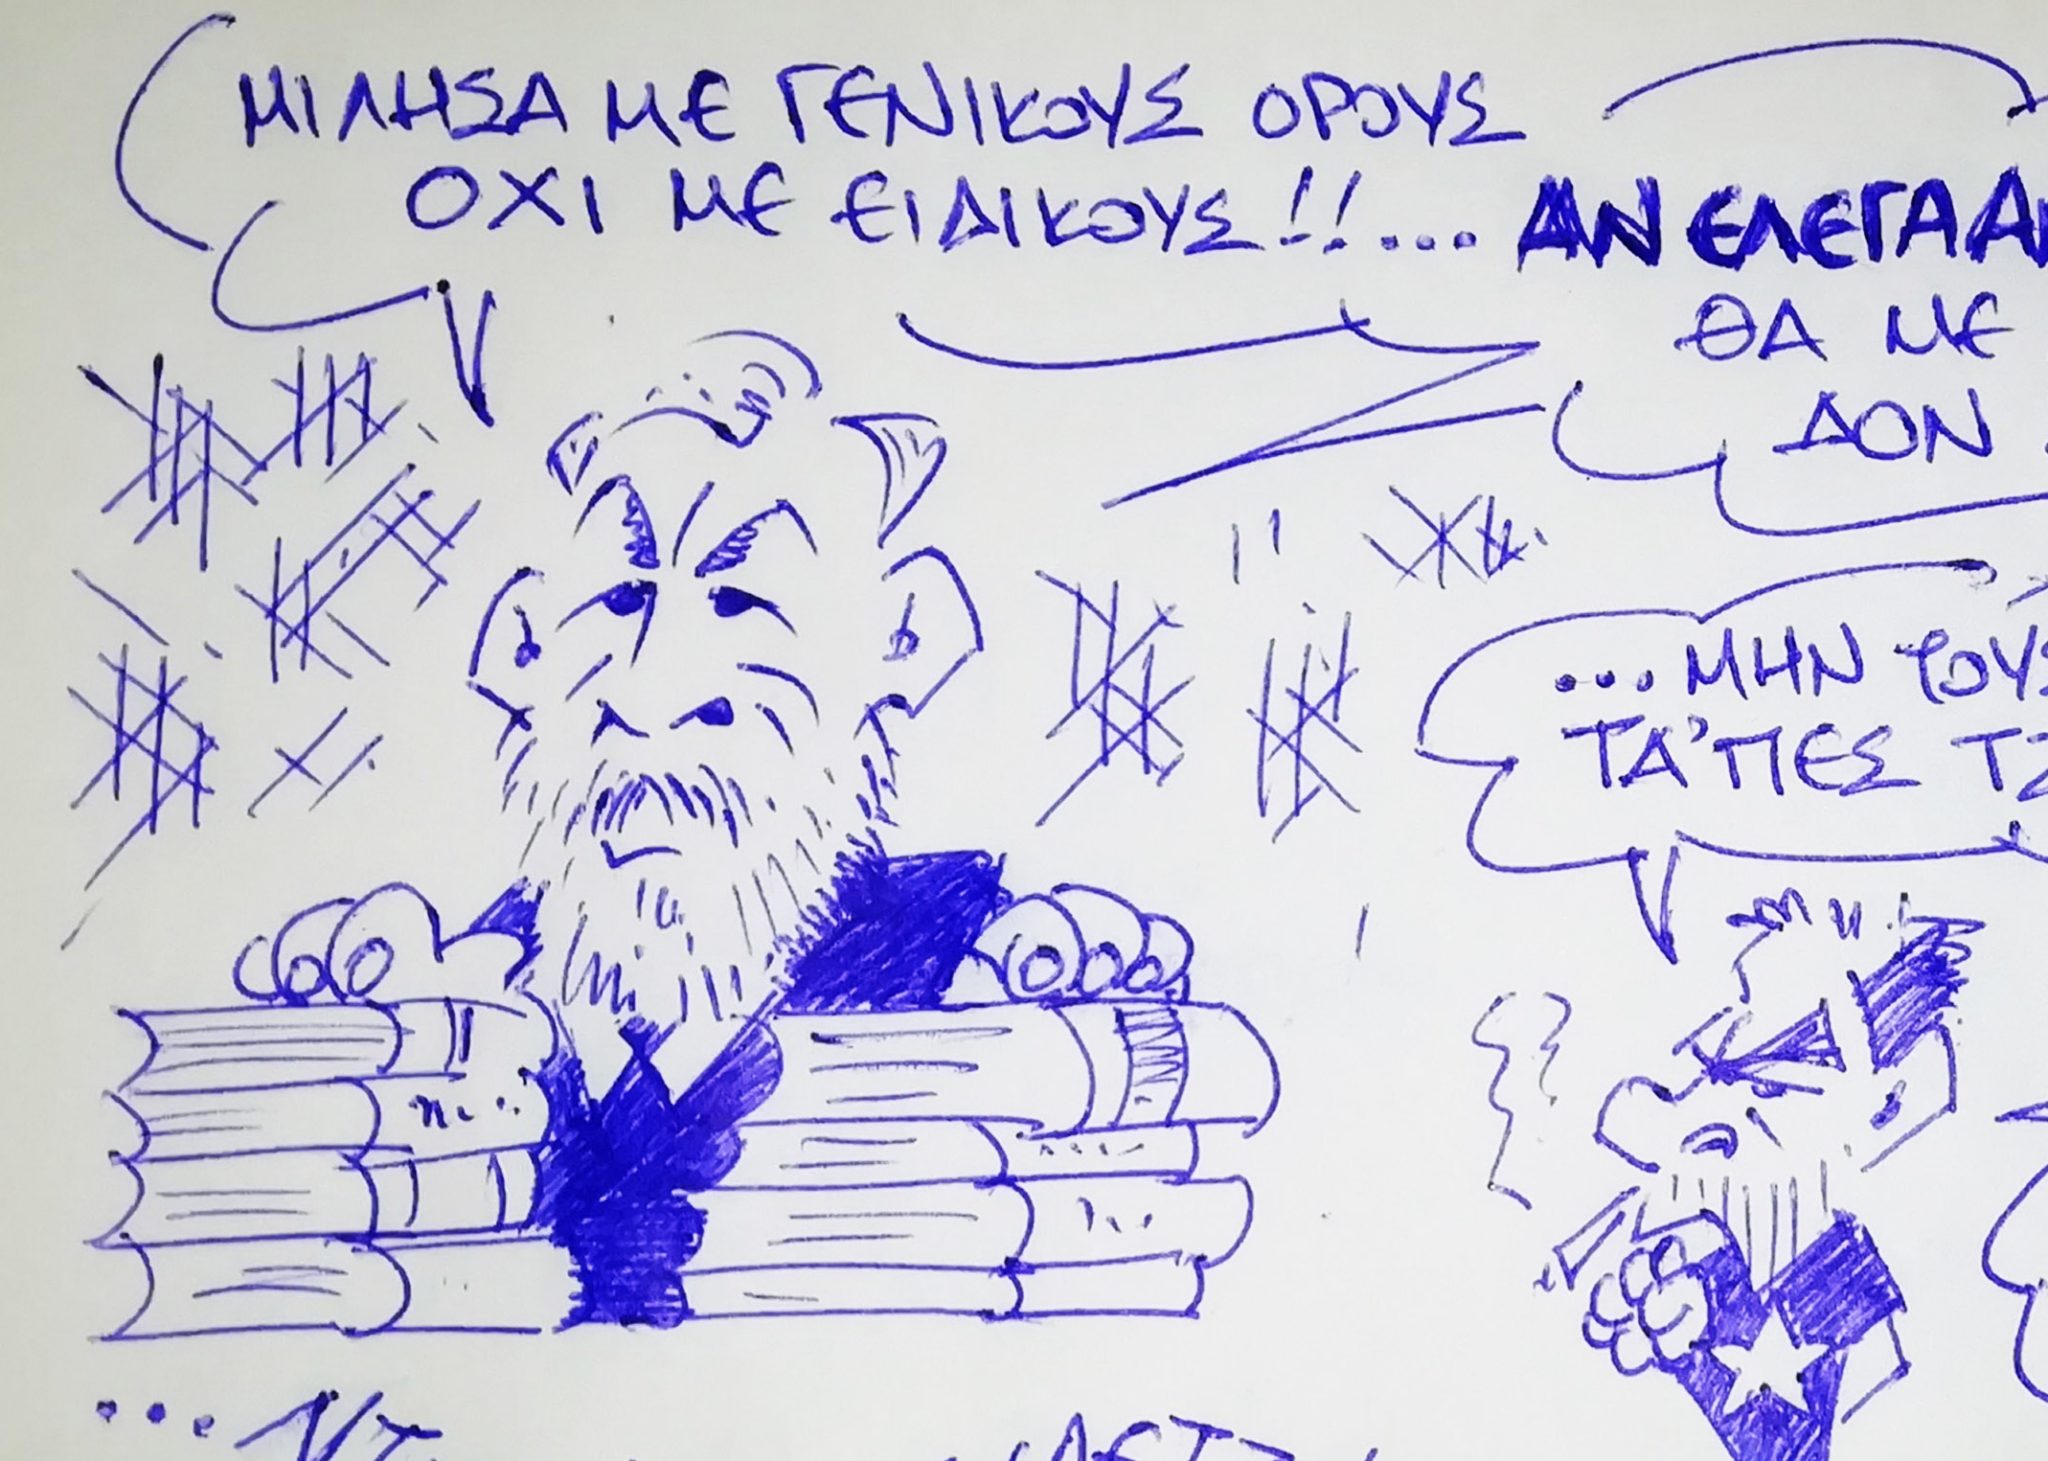 ΜΙΛΗΣΑ ΜΕ ΓΕΝΙΚΟΥΣ ΟΡΟΥΣ
ΟΧΙ ΜΕ ΕΙΔΙΚΟΥΣ!!...
ΑΝ ΕΛΕΓΑ
ΘΑ ΜΕ
ΔΟΝ
...ΜΗΝ
ΤΑ'ΠΕΣ